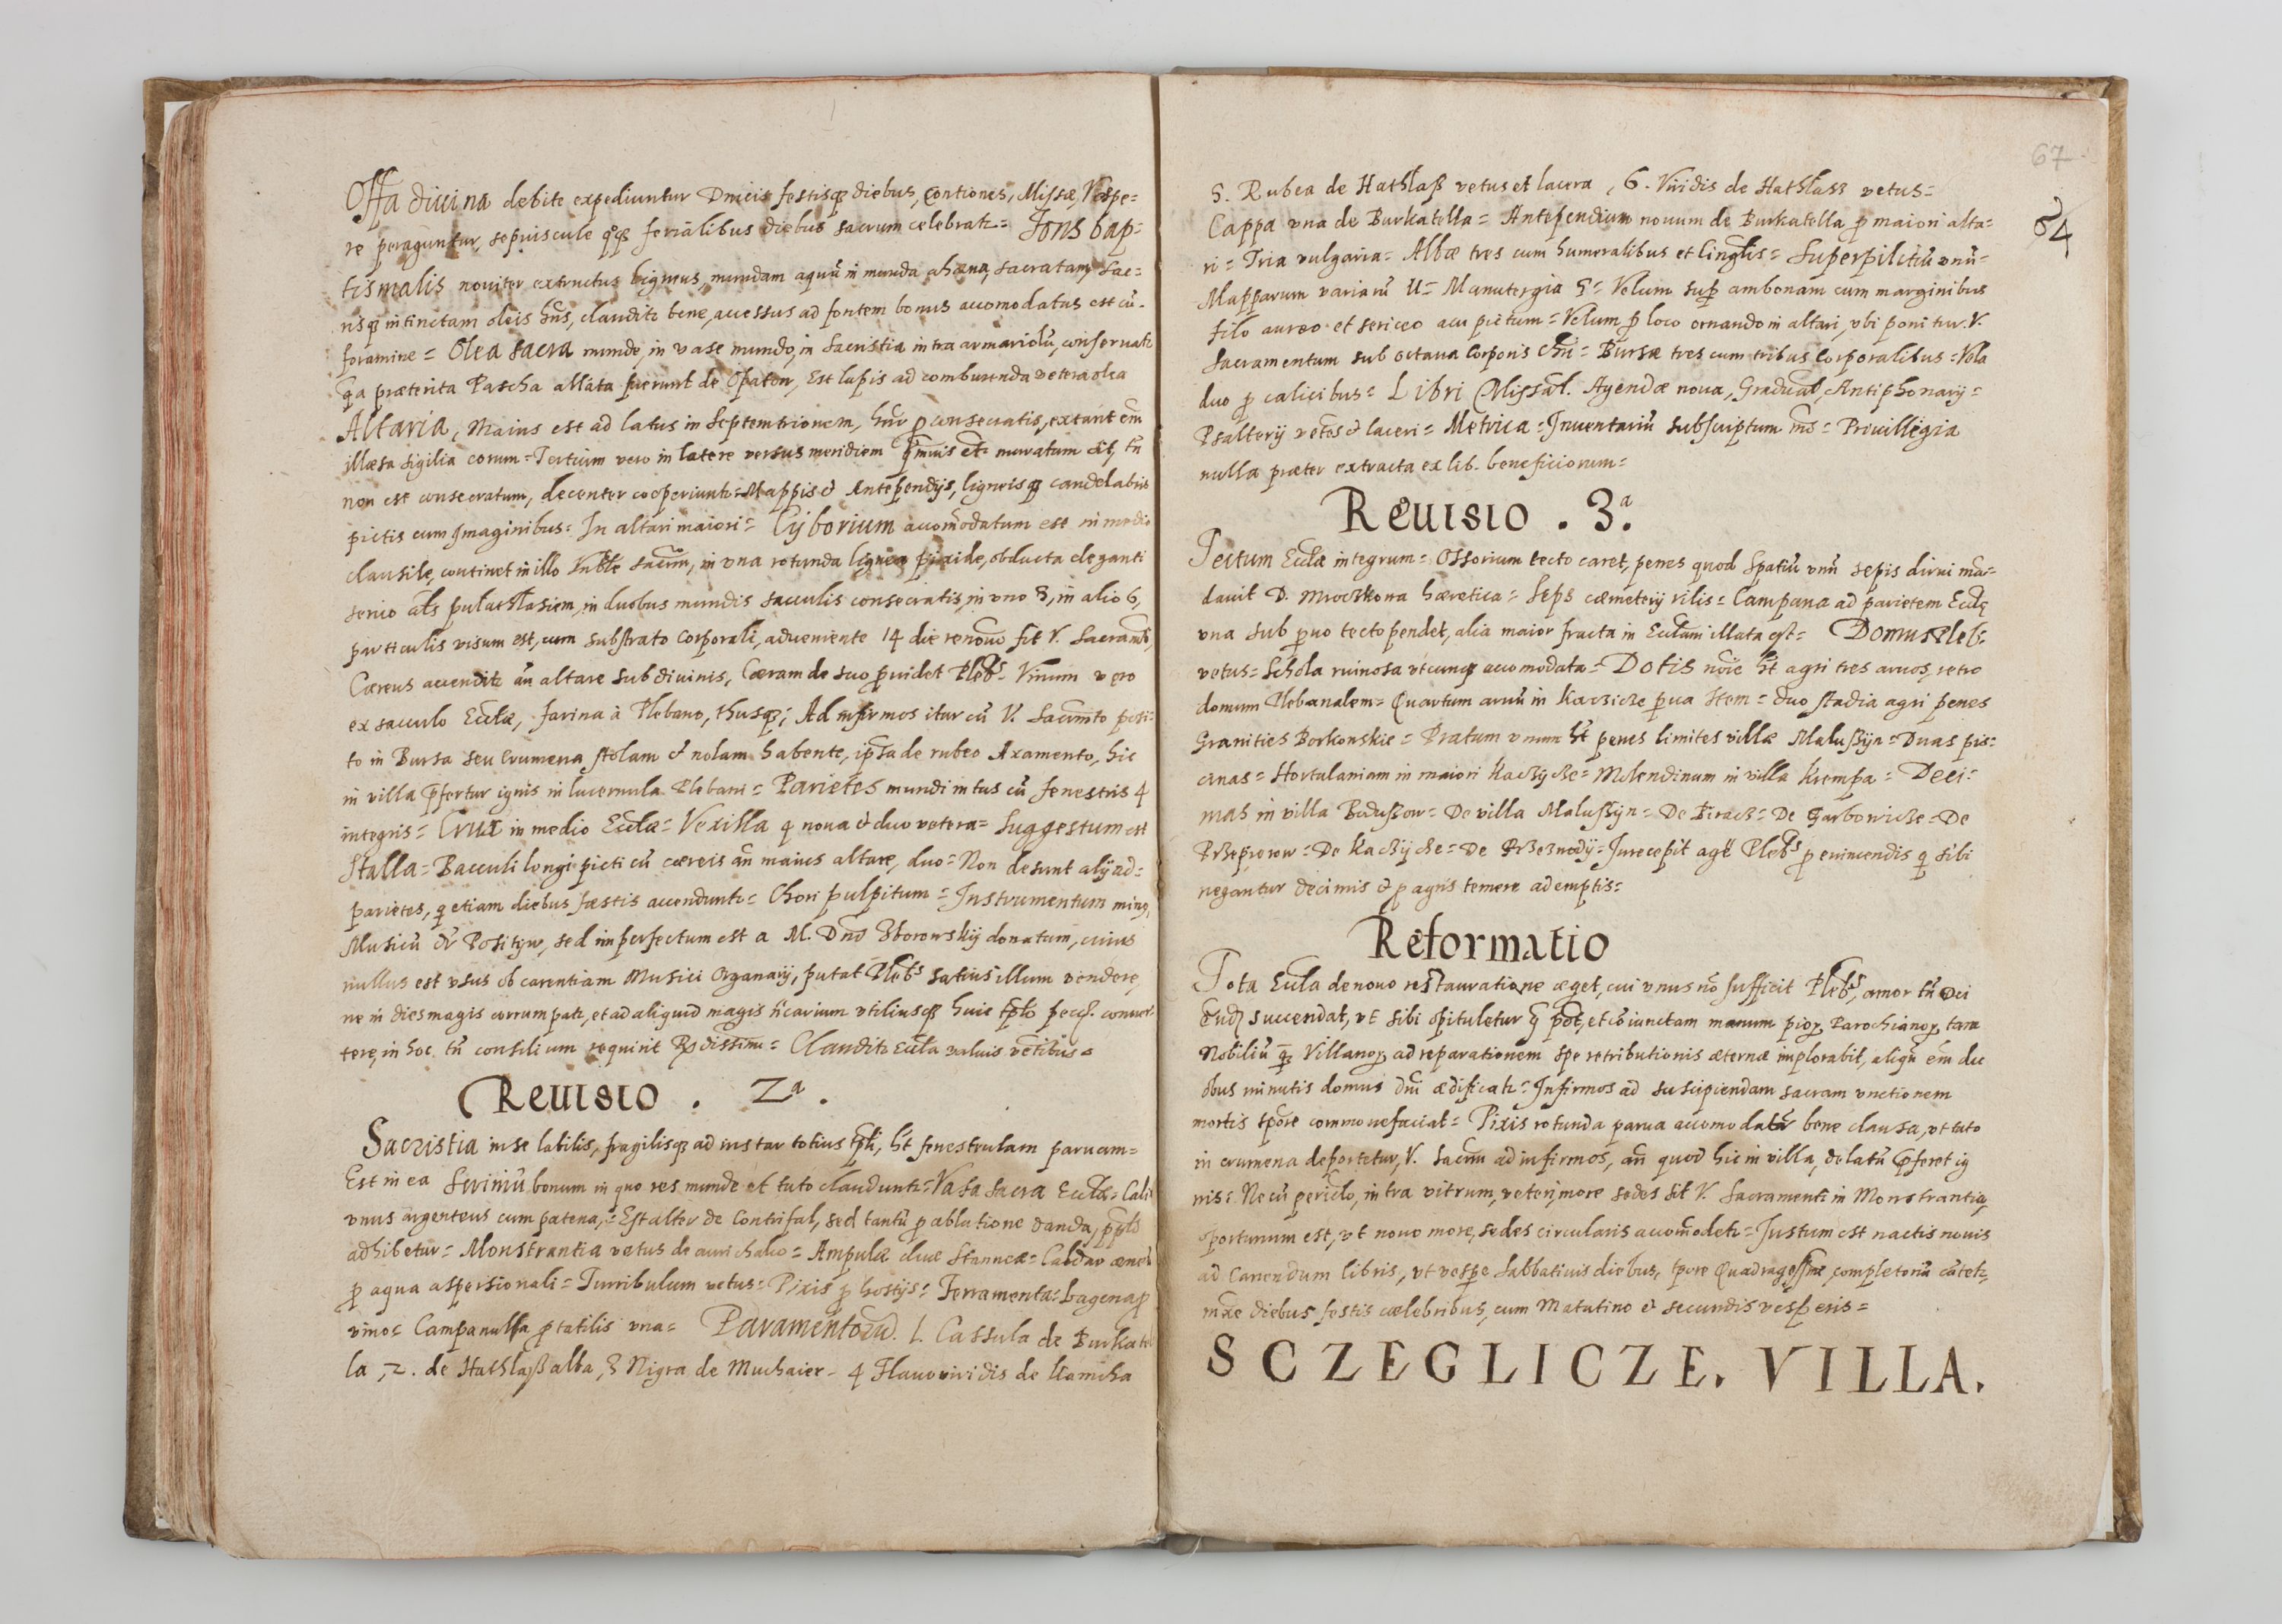 Offa diuina debite expediuntur Dnicis festisq; diebus, Contiones, Missæ, Vespe=
re peraguntur, sepiuscule qq; ferialibus diebus sacrum celebratr= Fons bap=
tismalis nouiter extructus ligneus, mundam aquã in munda ahæna, sacratam, sac=
risq; intinctam oleis hns, clauditr bene, accessus ad fontem bonus accomodatus est cũ
foramine = Olea sacra munde, in vase mundo, in sacristia intra armariolũ, conseruatr
qa præterita Pascha allata fuerunt de Opatow, Est lapis ad comburenda vetera olea
Altaria, Maius est ad latus in Septemtrionem, hnr p consecratis, extant em
illæsa sigilia eorum = Tertium vero in latere versus meridiem qmuis et muratum sit, tñ
non est consecratum, decenter cooperiuntr = Mappis & Antependijs, ligneisq; candelabris
pictis cum Jmaginibus = In altari maiori = Cyborium accomodatum est in medio
clausile, continet in illo Vnble Sacrm, in vna rotunda lignea pixide, obducta eleganti
serico als pulathlasiem, in duobus mundis sacculis consecratis, in vno 8, in alio 6,
particulis visum est, cum substrato Corporali, adueniente 14 die renouõ fit V. Sacramti,
Cæreus accenditr añ altare sub diuinis, Cæram de suo puidet Plebs. Vinum vero
ex sacculo Ecclæ, farina à Plebano, thusq; Ad infirmos itur cũ V. Sacrmto posi=
to in Bursa seu Crumena stolam & nolam habente, ipsa de rubeo Axamento, hic
in villa pfertur ignis in lucernula Plebani = Parietes mundi intus cũ fenestris 4
integris = Crux in medio Ecclæ = Vexilla q noua & duo vetera = Suggestum est
Stalla = Bacculi longi picti cũ cæreis añ maius altare, duo = Non desunt alij ad=
parietes, q etiam diebus fæstis accenduntr = Chori pulpitum = Instrumentum minq,
Musicũ dr Posityw, sed imperfectum est a M. Dno Zborowskij donatum, cuius
nullus est vsus ob carentiam Musici Organarij, putat Plebs satius illum vendere,
ne in dies magis corrumpatr, et ad aliquid magis ncarium vtiliusq; huic tplo pecq. conuer=
tere, in hoc tñ consilium requirit Rssdissim = Clauditr Eccla valuis vetibus =
Reuisio . 2a .
Sacristia in se labilis, fragilisq; ad instar totius tpli, ht fenestrulam paruam =
Est in ea Scriniũ bonum in quo res munde et tuto clauduntr = Vasa sacra Ecclæ = Calix
vnus argenteus cum patena, = Est alter de Contrifal, sed tantũ p ablutione danda, pplo
adhibetur = Monstrantia vetus de aurichalco = Ampulæ duæ stanneæ = Caldar æneũ
p aqua aspersionali = Turribulum vetus = Pixis p hostijs = Ferramenta = Lagena p
vino = Campanulla ptatilis vna = Paramentorũ. 1. Cassula de Burkatel
la, 2. de Hathlaß alba, 3 Nigra de Muchaier - 4 Flauo viridis de Kamcha
67
64
5. Rubea de Hathlaß vetus et lacera, 6. Viridis de Hathlass vetus =
Cappa vna de Burkatella = Antependium nouum de Burkatella p maiori alta=
ri = Tria vulgaria = Albæ tres cum humeralibus et linglis = Superpilitiũ vnũ =
Mapparum variarũ 11 = Manutergia 5 = Velum sup ambonam cum marginibus
filo aureo et sericeo acu pictum = Velum p loco ornando in altari, vbi ponitur V.
Sacramentum sub octaua Corporis Chri = Bursæ tres cum tribus Corporalibus = Vela
duo p calicibus = Libri Missal. Agendæ noua, Gradual, Antiphonarij =
Psalterij vetes & laceri = Metrica = Inuentariũ subscriptum ms = Priuillegia
nulla præter extracta ex lib. beneficiorum =
Reuisio . 3.a
Tectum Ecclæ integrum = Ossorium tecto caret, penes quod Spatiũ vnũ sepis dirui ma=
dauit D. Mroczkowa hæretica = Seps cæmeterij vilis = Campana ad parietem Ecclę
vna sub paruo tecto pendet, alia maior fracta in Ecclam illata est = Domus Pleb.
vetus = Schola ruinosa vtcunq; accomodata = Dotis noie ht agri tres aruos, retro
domum Plebanalem = Quartum aruũ in Kaczicze parua Item = duo stadia agri penes
Granities Borkowskie = Pratum vnum ht penes limites villæ Malußijn = Duas pis=
cinas = Hortulaniam in maiori Kaczijcze = Molendinum in villa Krempa = Deci=
mas in villa Bidußow = De villa Malußijn = De Piracz = De Garbowicze = De
Przepiorow = De Kaczijcze = De Przeznodij = Jurecepit agē Plebs p euincendis q sibi
negantur decimis & p agris temere ademptis =
Reformatio
Tota Eccla denouo restauratione æget, cui vnus nõ sufficit Plebs, amor tñ Dei
eudz succendat, vt sibi opituletur q pot, et coiunctam manum pioz Parochianoz, tam
Nobiliũ q Villanoz ad reparationem spe retributionis æternæ implorabit, aliqñ em du
obus minutis domus Dni ædificatr = Infirmos ad suscipiendam sacram vnctionem
mortis tpore commonefaciat = Pixis rotunda parua accomodatr bene clausa, vt tuto
in crumena deportetur, V. Sacrm ad infirmos, añ quod hic in villa, delatũ pferet ig
nis = Ne cũ periclo, intra vitrum, veteri more sedes sit V. Sacramenti in Monstrantia,
oportunum est, vt nouo more, sedes circularis accomodetr = Justum est nactis nouis
ad Canendum libris, vt vespe sabbatiuis diebus, tpore Quadragessimæ completoriũ cãtetr,
mxe diebus festis cælebribus, cum Matutino & secundis vesperis =
SCZEGLICZE. VILLA.